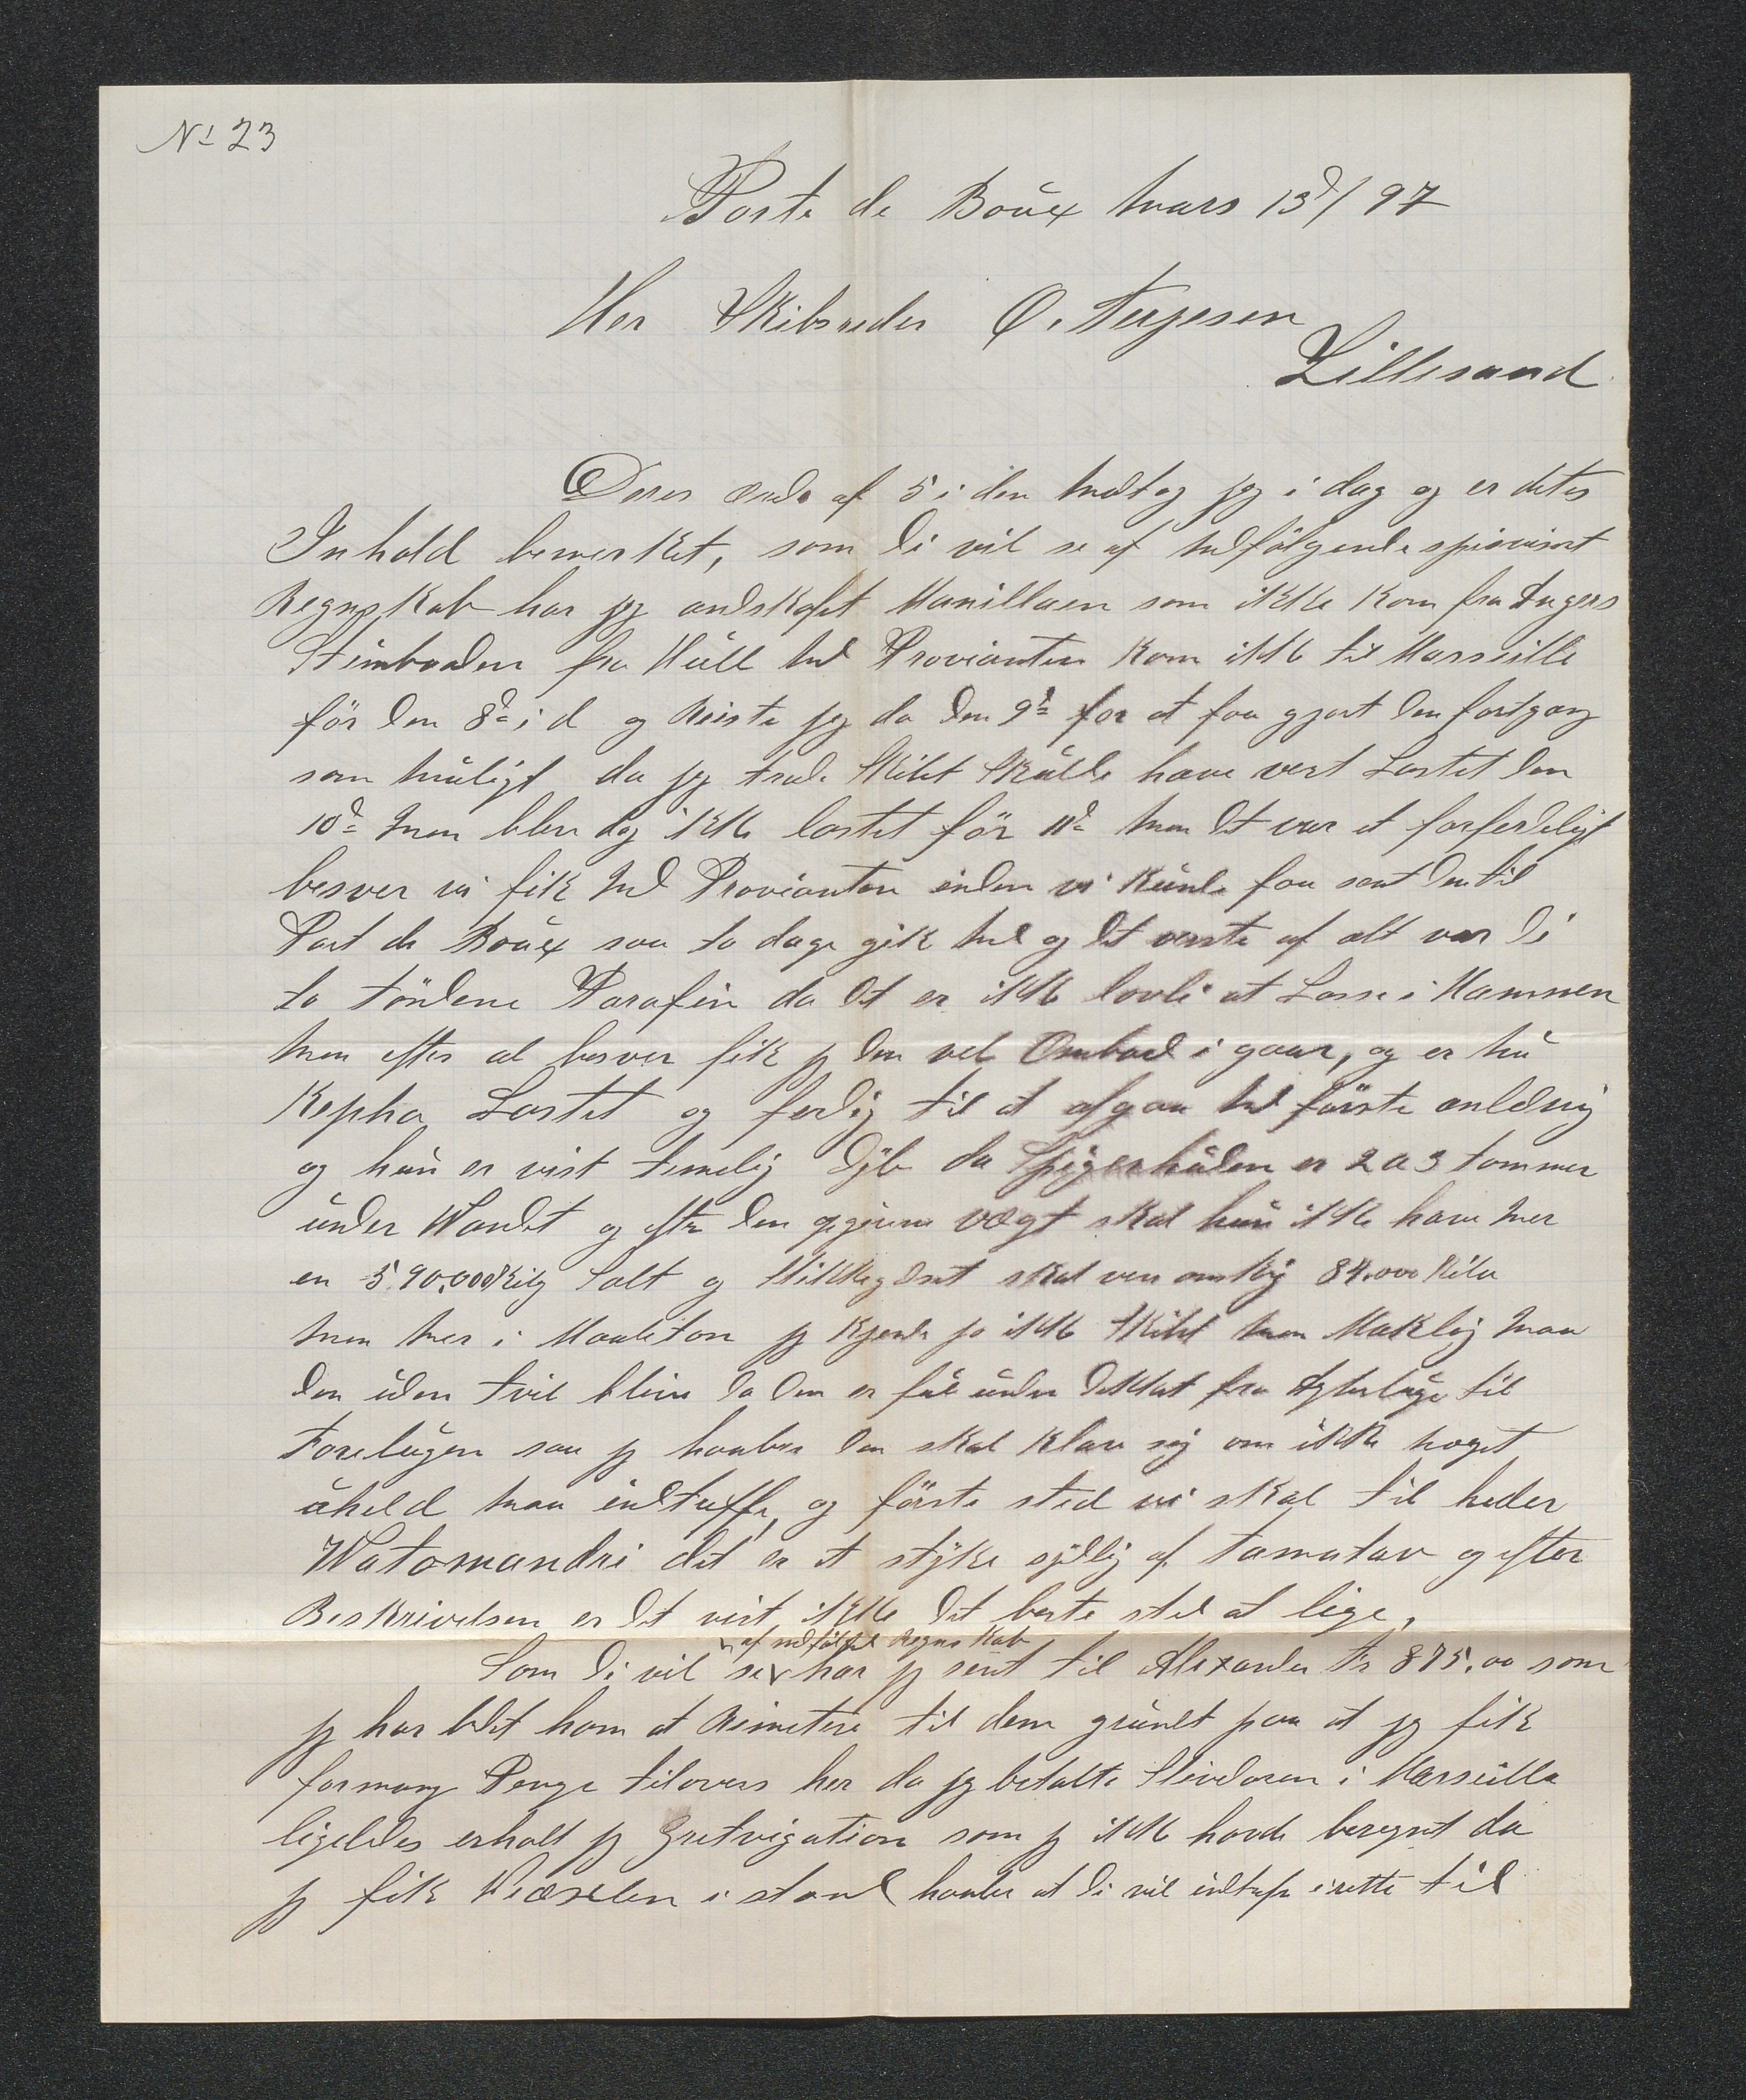 No 23
Porte de Bouex Mars 13d/97
Her Skibsreder O. Terjesen
Lillesand
Deres ærede af 5 i den Modtog jeg i dag og er detes
Inhold bemerket, som di vil se af Medfölgende
Regnskab har jeg andskafet Manillaen som ikke kom fra Angers
Stimbaaden fra Hull Med Provianten kom ikke til Marseille
för den 8de i d og Reiste jeg da den 9de for at faa gjort den fortgang
som Muligt da jeg trode Skibet Skulle have vert Lastet den
10de Men blev dog ikke lastet för 11de Men det var et forferdeligt
besver vi fik Med Provianten inden vi kunde faa sent den til
Port de Bouex saa to dage gik Med og det verste af alt var di
to töndene Parafin da det er ikke lovli at Losse i Hamnen
Men efter al besver fik jeg den vel Ombord i gaar, og er Nu
Kepha Lastet og ferdig til at afgaa Med förste anledning
og hun er vist temelig dyb da Spigerhuden er 2 a 3 tommer
under Wandet og efter den opgivne vægt skal hun ikke have Mer
en 590,000 Kilg Salt og skal vere omkring 84.000 Kilo
Men Mer i Maaleton jeg kjende jo ikke Skibet Men Maklig Maa
den uden tvil blive da den er ful under dekket fra Agterluge til
Forelugen saa jeg haaber den skal klare sig om ikke noget
uheld Maa indtreffe, og förste sted vi skal til heder
Watomandri det er et stykke sydlig af Tamatav og efter
Beskrivelsen er det vist ikke det beste sted at lige,
af medfölgend Regnskab
Som di vil se har jeg sent til Alexander Fr 875.00 som
jeg har bedt ham at Remitere til dem grundet paa at jeg fik
formang Penge tilovers her da jeg betalte Stivdoren i Marseille
ligeledes erholdt jeg Gretvigation som jeg ikke havde beregnet da
jeg fik Wexelen i stand haaber at di vil indtrefe i rette tid